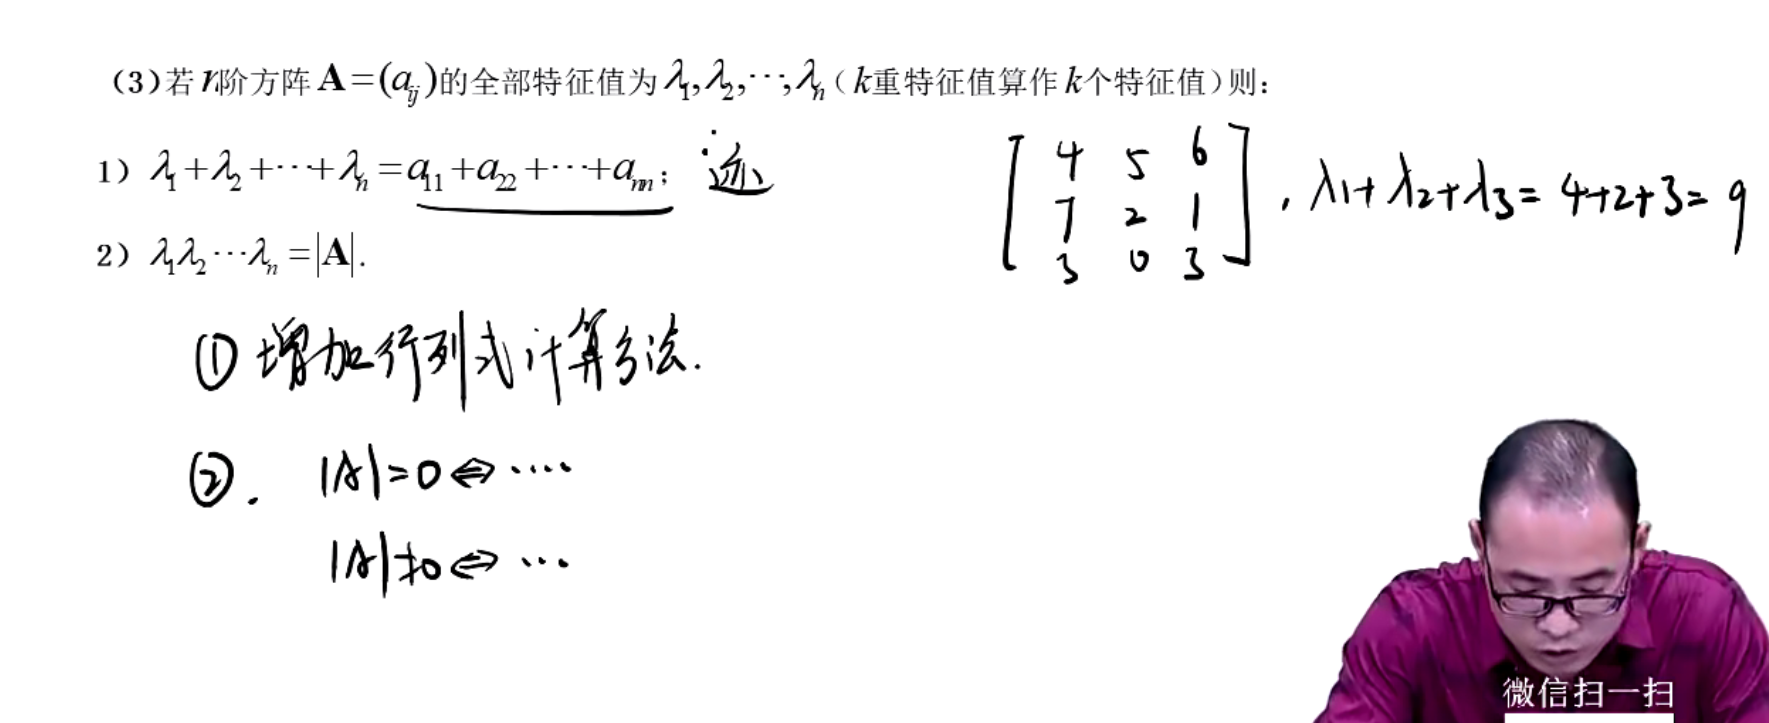 (3)若n阶方阵A=(aᵢⱼ)的全部特征值为λ₁,λ₂,⋯,λₙ(k重特征值算作k个特征值)则:
1) λ₁+λ₂+⋯+λₙ=a₁₁+a₂₂+⋯+aₙₙ; 迹
2) λ₁λ₂⋯λₙ=|A|.
4 5 6
7 2 1
3 0 3
, λ₁+λ₂+λ₃=4+2+3=9
① 增加行列式计算方法.
②. |A|=0⇔····
|A|≠0⇔···
微信扫一扫